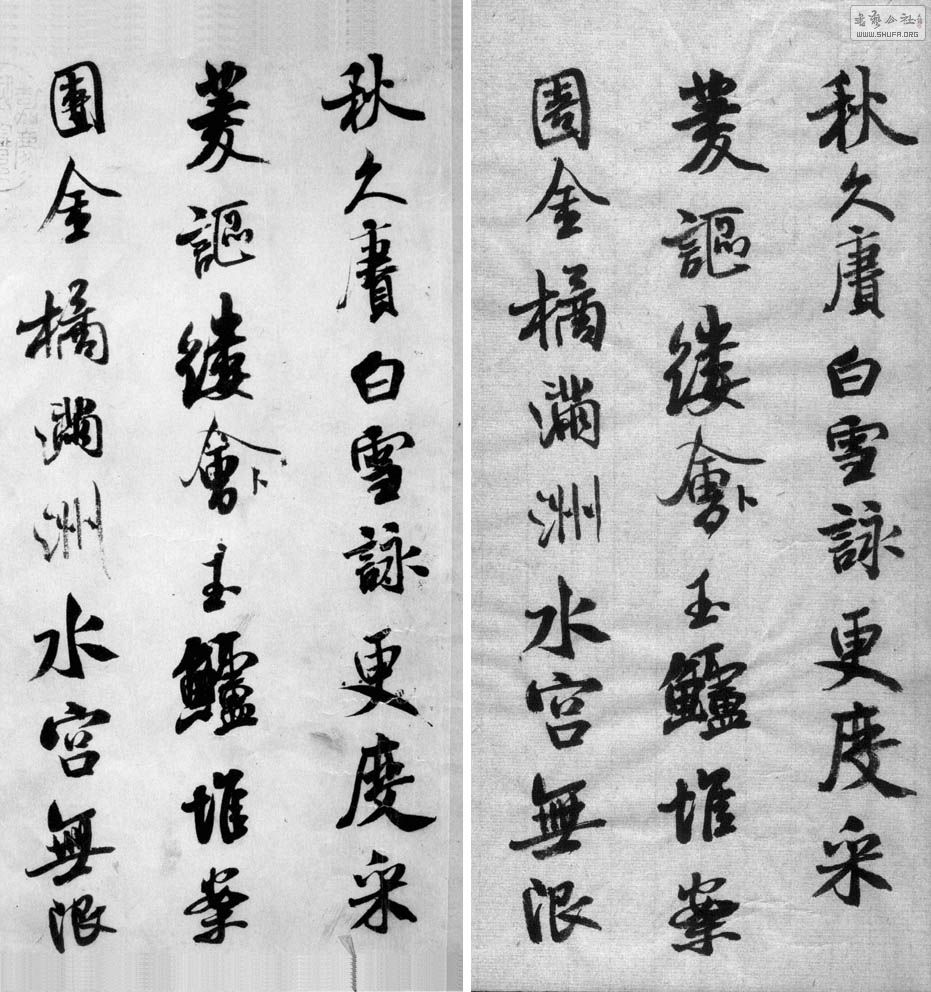 書藝公社
WWW.SHUFA.ORG
秋久賡白雪詠更度采
菱謳縷會卜玉鱸堆案
團金橘滿洲水宮無限
秋久賡白雪詠更度采
菱謳縷會卜玉鱸堆案
團金橘滿洲水宮無限